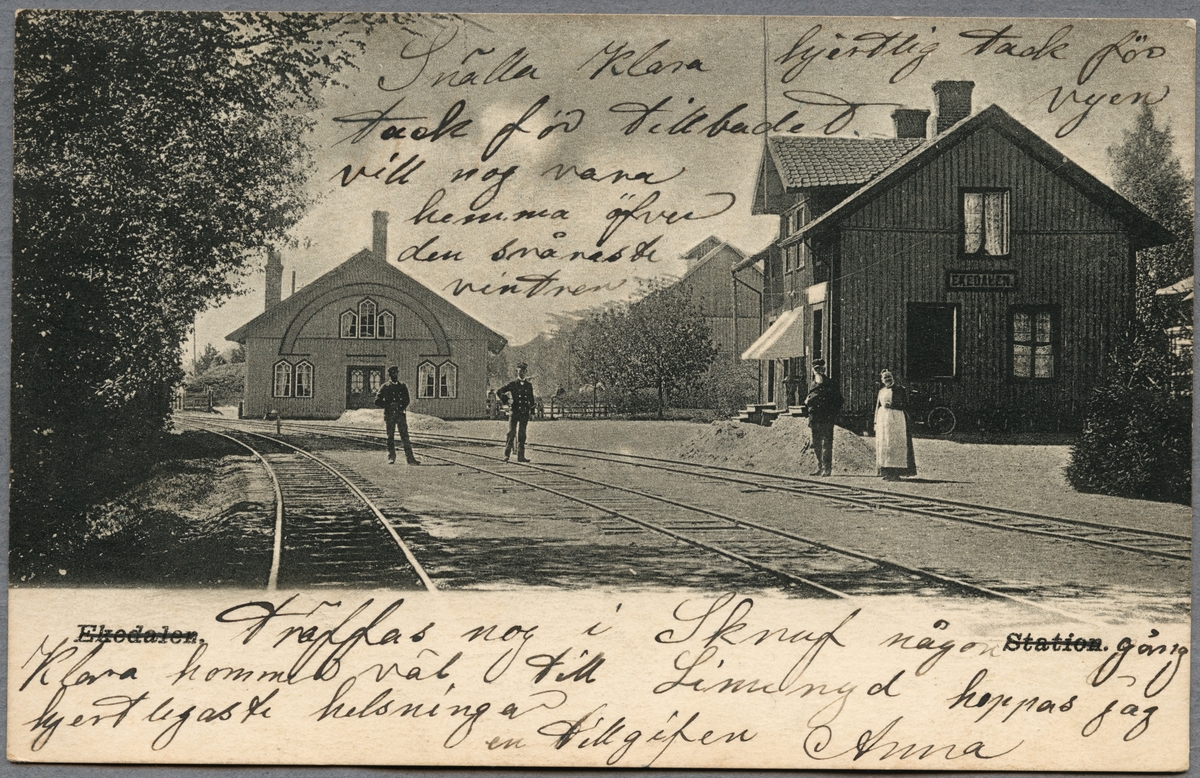 Snälla Klara hjertlig tack för
vyen
tack för tillbudet
vill nog vara
hemma öfver
den svåraste
vintren
EKEDALEN
Ekedalen. Station.
träffas nog i Skruf någon gång
Klara kommer väl till Limmnyd hoppas jag
hjertligaste helsningar
en tillgifen Anna